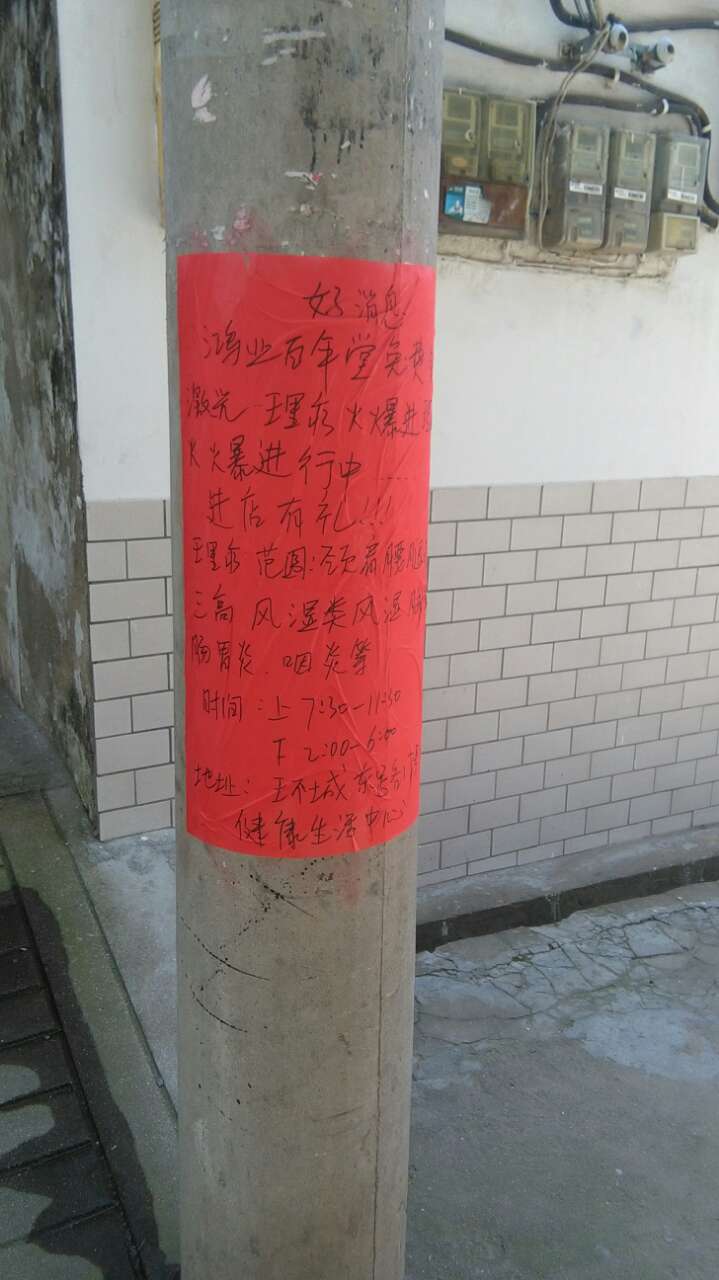 好消息
鸿业百年堂免费
激光理疗火爆进
火爆进行中……
进店有礼!!!
理疗范围:颈肩腰
三高 风湿类风湿
肠胃炎.咽炎等
时间:上 7:30-11:30
下 2:00-6:00
地址:王不城东
健康生活中心